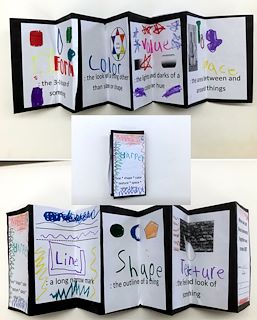 Form
: the 3-D
something
Color
: the look of a thing other
than size or shape
Value
: the lights and darks of a
color or hue
Space
: the area between and
around things
Harper
line * shape * color
Line
: a long narrow mark
Shape
: the outline of a thing
Texture
: the feel and look of
something